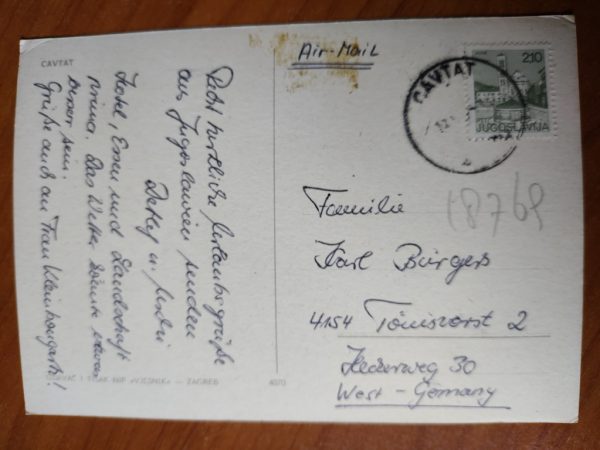 CAVTAT
Recht herzliche Urlaubsgrüße
aus Jugoslawien senden
Detlev u.
Hotel, Essen und Landschaft
prima. Das Wetter könnte etwas
besser sein.
Grüße auch an Frau
ZAGREB
4070
Air-Mail
CAVTAT
210
JUGOSLAVIJA
18769
Familie
Karl Bürgers
4154 Tönisvorst 2
30
West-Germany